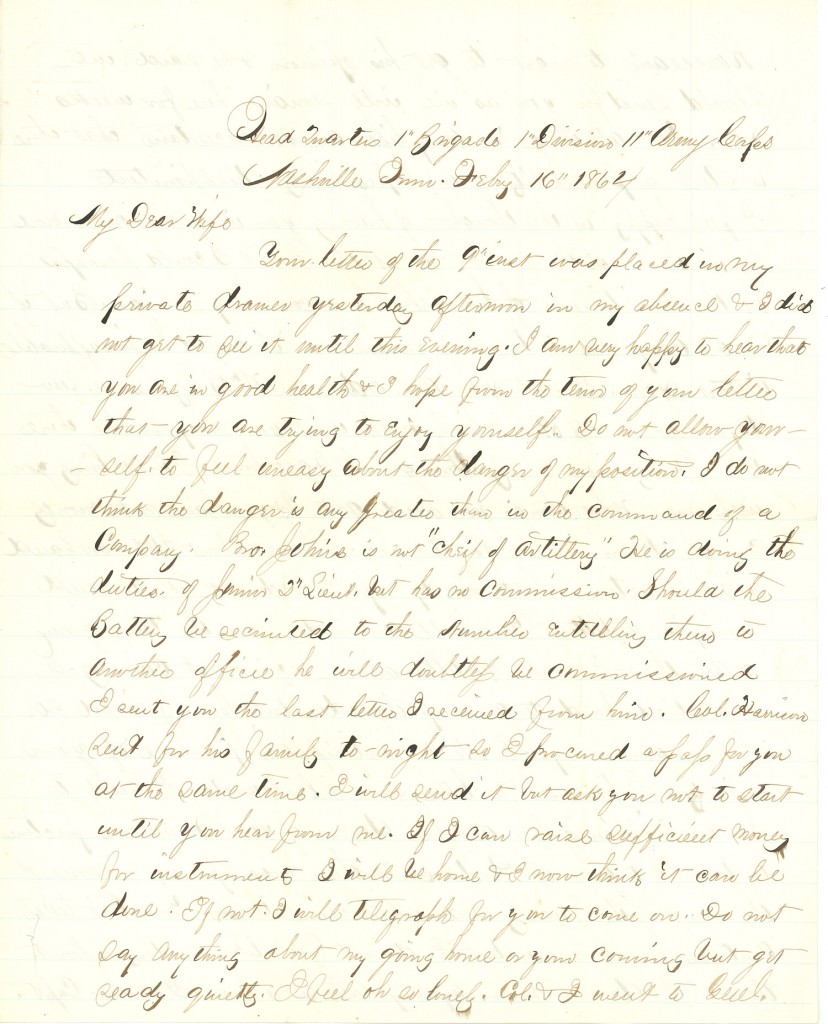 Head Quarters 1" Brigade 1" Division 11" Army Corps
Nashville Tenn. Feby 16" 1864
My Dear Wife
Your letter of the 9" inst was placed in my
private drawer yesterday afternoon in my absence & I did
not get to see it until this evening. I am very happy to hear that
you are in good health & I hope from the tenor of your letter
that you are trying to Enjoy yourself. Do not allow your-
-self to feel uneasy about the danger of my position. I do not
think the danger is any greater than in the command of a
Company. Bro. Johnie is not "cheif of Artillery" He is doing the
duties of Junior 2" Lieut. but has no commission. Should the
Battery be recruited to the number entitling them to
another officer he will doubtless be commissioned
I sent you the last letter I received from him. Col. Harrison
sent for his family to-night so I procured a pass for you
at the same time. I will send it but ask you not to start
until you hear from me. If I can raise sufficient money
for instruments I will be home & I now think it can be
done. If not I will telegraph for you to come on. Do not
say anything about my going home or your coming but get
ready quietly. I feel oh so lonely. Col. & I went to Genl.